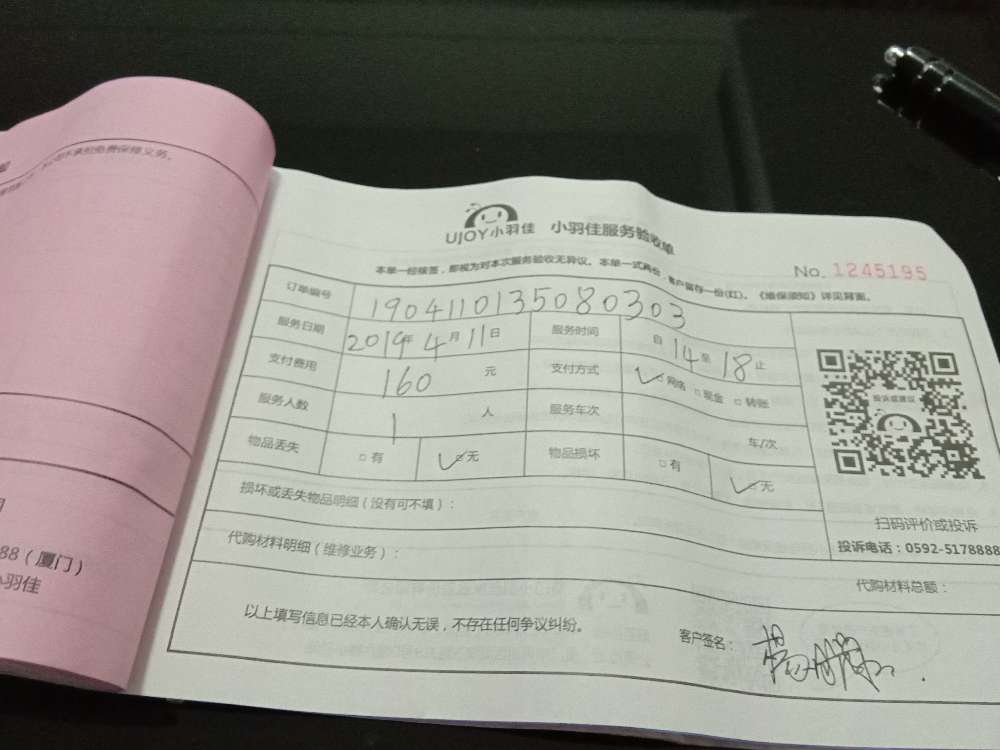 承担免费保修义务。
88（厦门）
小羽佳
UJOY小羽佳 小羽佳服务验收单
No. 1245195
本单一经接签，即视为对本次服务验收无异议。本单一式两份，客户留存一份(红)。《维保须知》详见背面。
订单编号 1904110135080303
服务日期 2019年 4月 11日 服务时间 自 14 至 18 止
支付费用 160 元 支付方式 ✓□网络 □现金 □转账
服务人数 1 人 服务车次 车/次
物品丢失 □有 ✓□无 物品损坏 □有 ✓□无
投诉或建议
扫码评价或投诉
投诉电话：0592-5178888
损坏或丢失物品明细（没有可不填）：
代购材料明细（维修业务）：
代购材料总额：
以上填写信息已经本人确认无误，不存在任何争议纠纷。
客户签名：